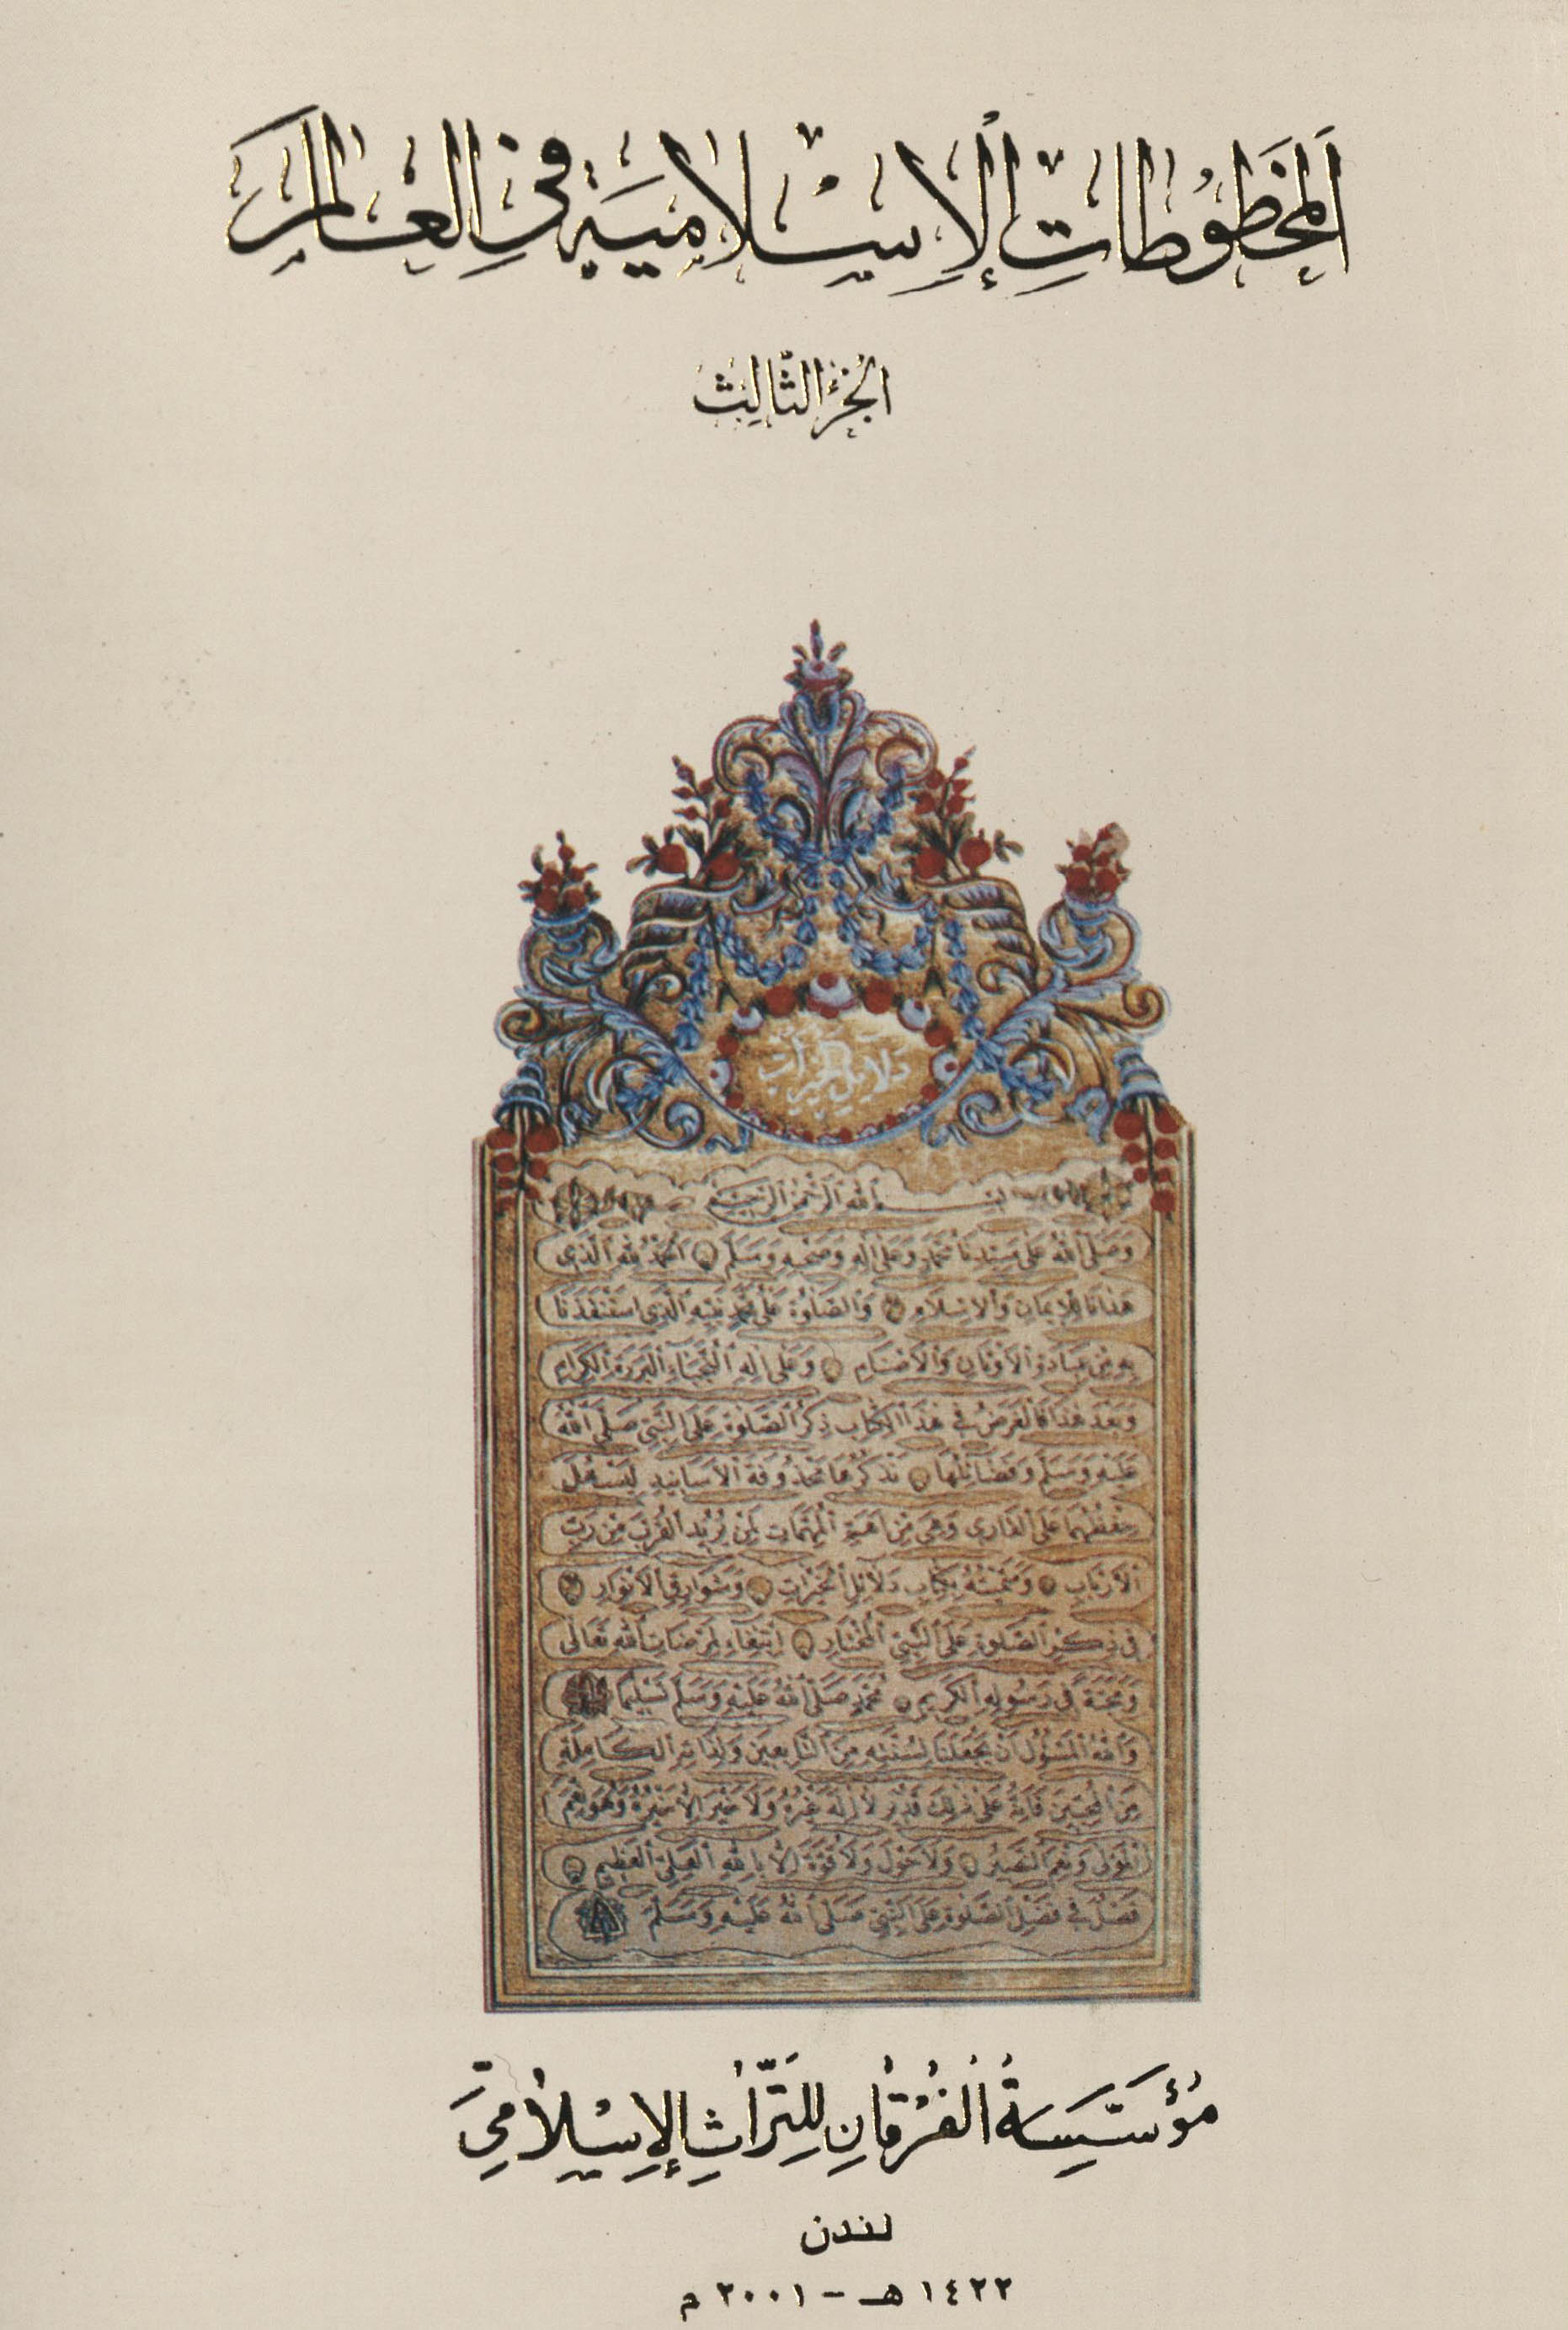 المخطوطات الإسلامية في العالم
الجزء الثالث
دلائل الخيرات
بسم الله الرحمن الرحيم
وصلى الله على سيدنا محمد وعلى اله وصحبه وسلم الحمد لله الذى
هدانا للإيمان والإسلام والصلوة على محمد نبيه الذى استنقذنا
به من عبادة الأوثان والأصنام وعلى اله النجباء البررة الكرام
وبعد هذا فالغرض في هذا الكتاب ذكر الصلوة على النبي صلى الله
عليه وسلم وفضائلها نذكرها محذوفة الأسانيد ليسهل
حفظها على القارى وهي من اهم المهمات لمن يريد القرب من رب
الأرباب وسميته بكتاب دلائل الخيرات وشوارق الأنوار
في ذكر الصلوة على النبي المختار ابتغاء لمرضات الله تعالى
ومحبة في رسوله الكريم محمد صلى الله عليه وسلم تسليما
والله المسؤل ان يجعلنا لسنته من التابعين ولذاته الكاملة
من المحبين فانه على ذلك قدير لا اله غيره ولا خير الا خيره وهو نعم
المولى ونعم النصير ولا حول ولا قوة الا بالله العلي العظيم
فصل في فضل الصلوة على النبي صلى الله عليه وسلم
مؤسسة الفرقان للتراث الإسلامي
لندن
١٤٢٢ هـ - ٢٠٠١ م